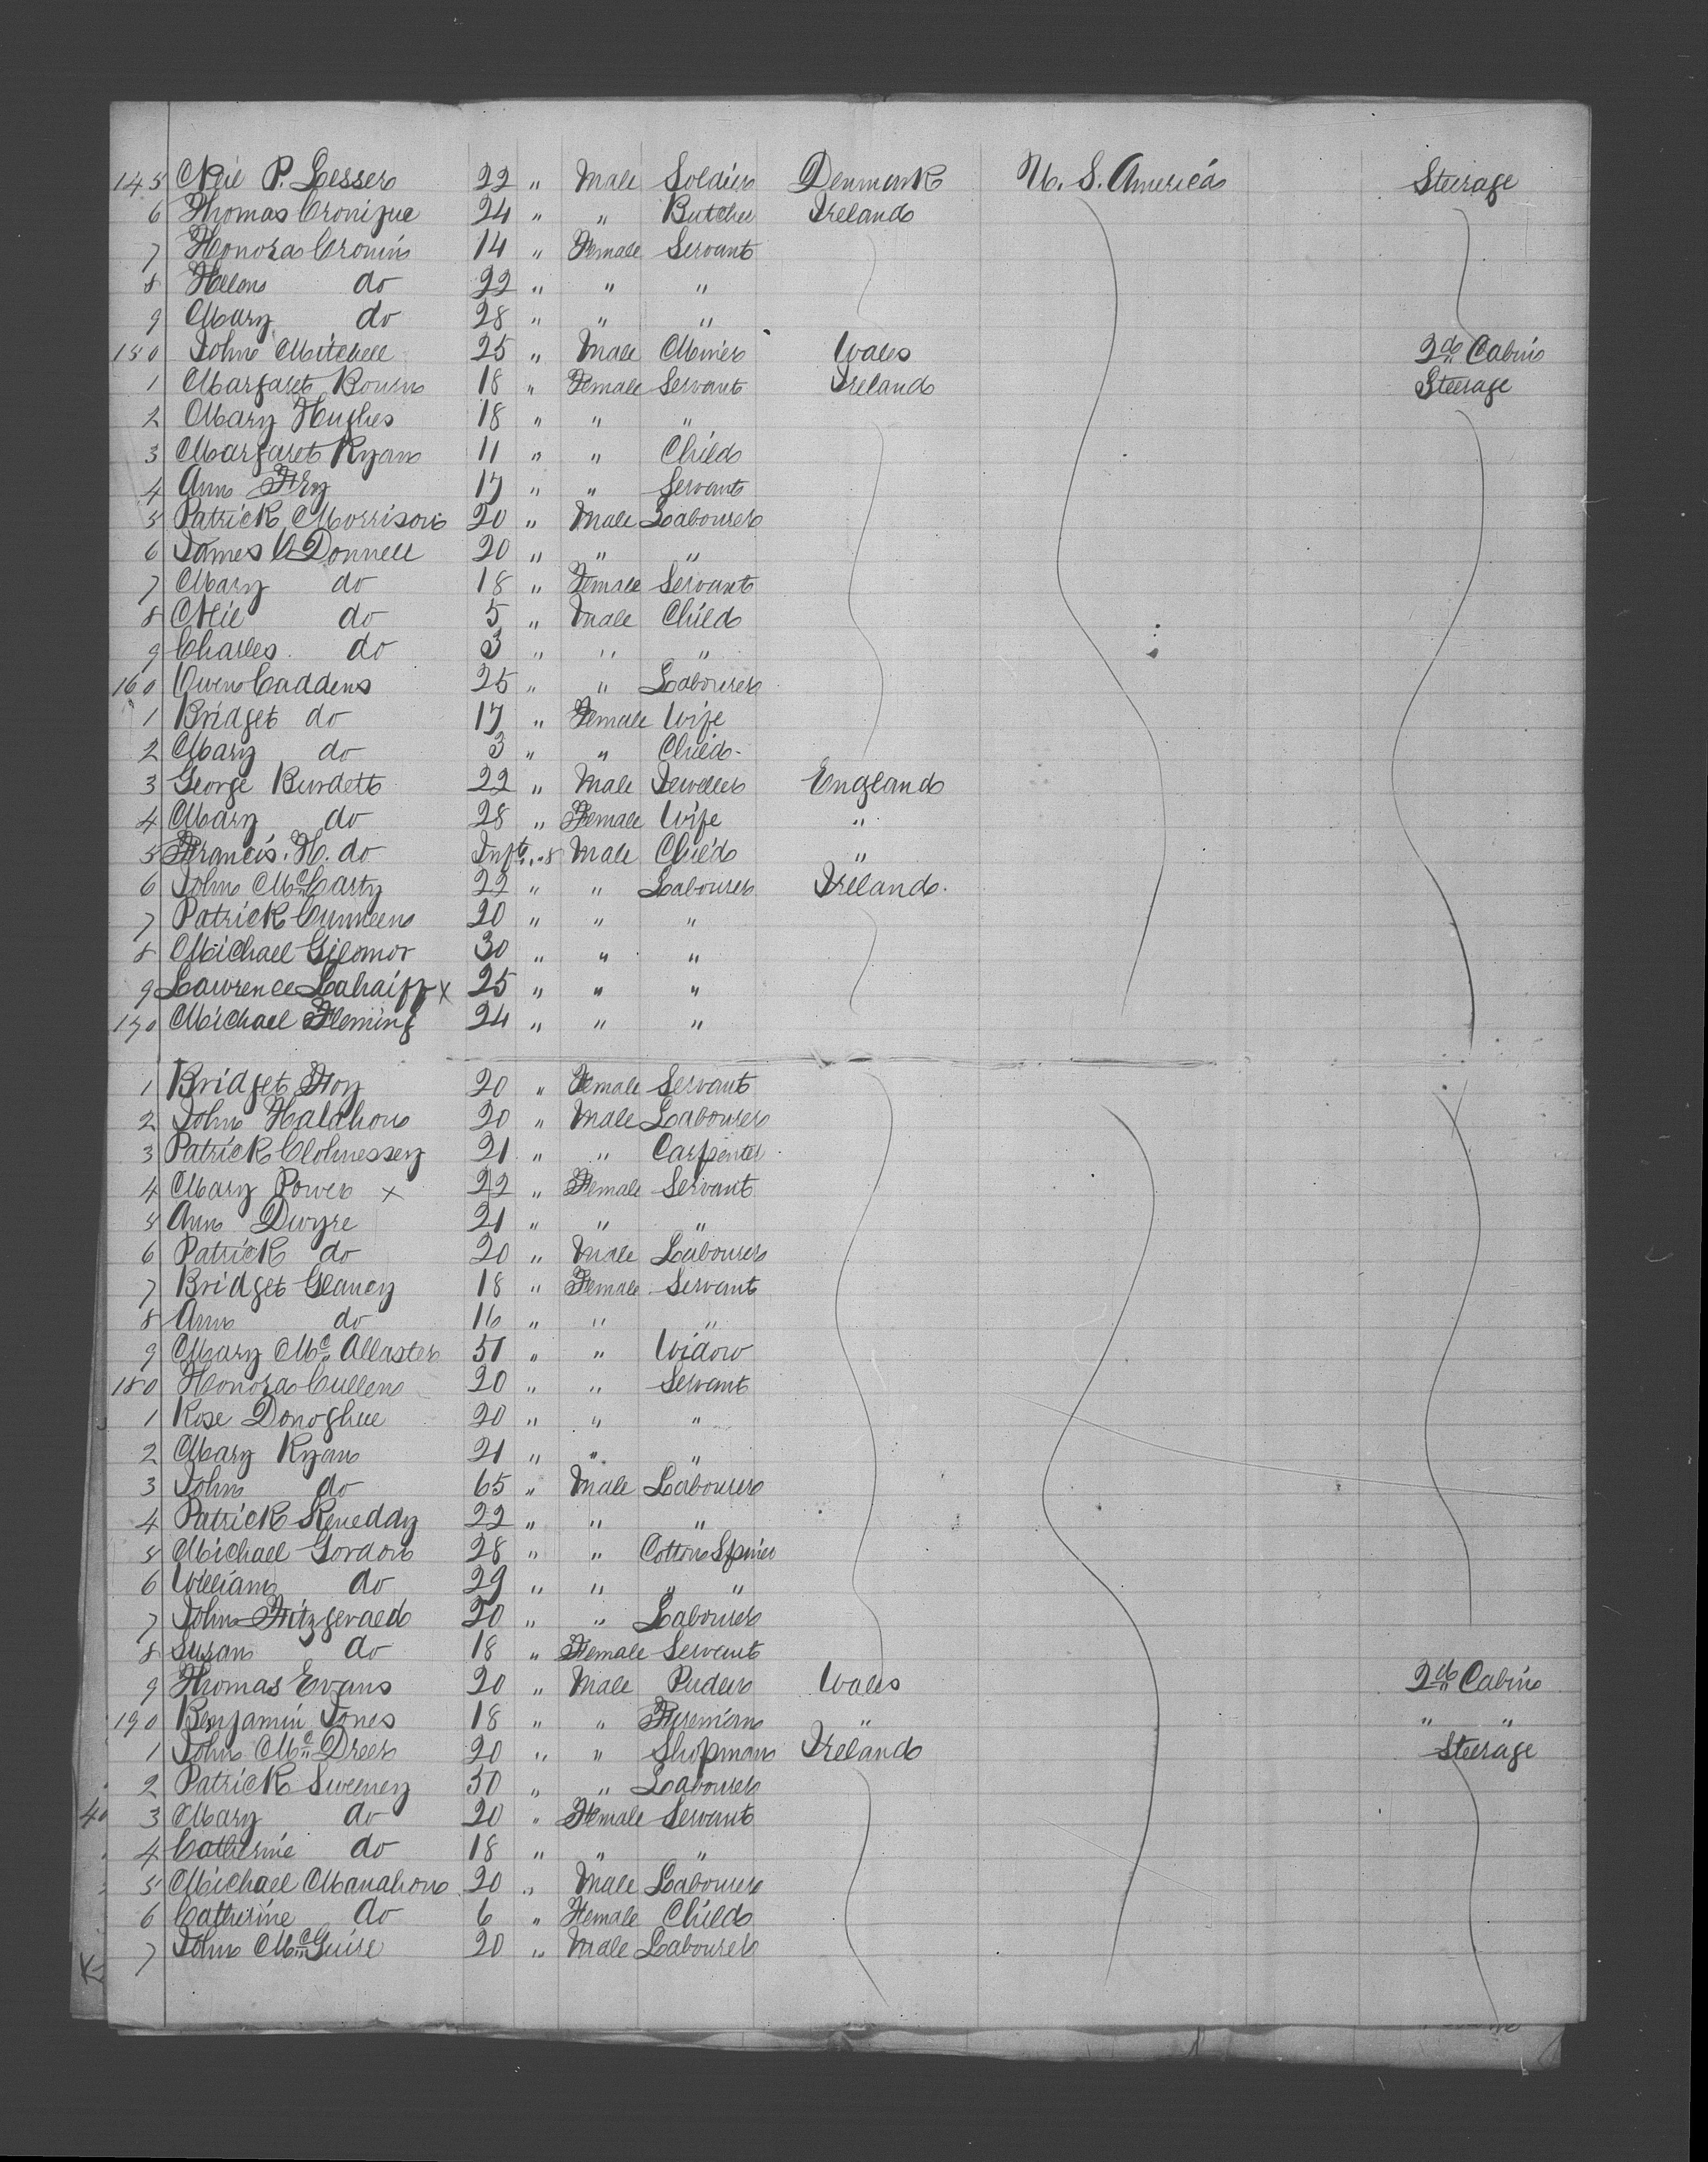 145 Neil P. Lesser 22 " Male Soldier Denmark U. S. America Steerage
6 Thomas Cronique 24 " " Butcher Ireland
7 Honora Cronin 14 " Female Servant
8 Hellen do 22 " " "
9 Mary do 28 " " "
150 John Mitchell 25 " Male Miner Wales 2nd Cabin
1 Margaret Bourn 18 " Female Servant Ireland Steerage
2 Mary Hughes 18 " " "
3 Margaret Ryan 11 " " Child
4 Ann 17 " " Servant
5 Patrick Morrison 20 " Male Labourer
6 James O Donnell 20 " " "
7 Mary do 18 " Female Servant
8 Neil do 5 " Male Child
9 Charles do 3 " " "
160 Owen Caddens 25 " " Labourer
1 Bridget do 17 " Female Wife
2 Mary do 3 " " Child
3 George Burdett 22 " Male Jeweller England
4 Mary do 28 " Female Wife "
5 Francis. H. do Inft " 8 Male Child "
6 John McCarty 22 " " Labourer Ireland
7 Patrick Cunneen 20 " " "
8 Michael Gilomor 30 " " "
9 Lawrence Lahaiff x 25 " " "
170 Michael Fleming 24 " " "
1 Bridget Foy 20 " Female Servant
2 John Halahon 20 " Male Labourer
3 Patrick Clohnessey 21 " " Carpenter
4 Mary Power x 22 " Female Servant
5 Ann Dwyre 21 " " "
6 Patrick do 20 " Male Labourer
7 Bridget Glancy 18 " Female Servant
8 Ann do 16 " " "
9 Mary Mc Allaster 51 " " Widow
180 Honora Cullen 20 " " Servant
1 Rose Donoghue 20 " " "
2 Mary Ryan 21 " " "
3 John do 65 " Male Labourer
4 Patrick Keneddy 22 " " "
5 Michael Gordon 28 " " Cotton Spiner
6 William do 29 " " " "
7 John Fitzgerald 20 " " Labourer
8 Susan do 18 " Female Servant
9 Thomas Evans 20 " Male Puder Wales 2nd Cabin
190 Benjamin Jones 18 " " Fireman " " "
1 John Mc Dreer 20 " " Shopman Ireland Steerage
2 Patrick Sweeney 50 " " Labourer
3 Mary do 20 " Female Servant
4 Catherine do 18 " " "
5 Michael Manahon 20 " Male Labourer
6 Catherine do 6 " Female Child
7 John McGuire 20 " Male Labourer